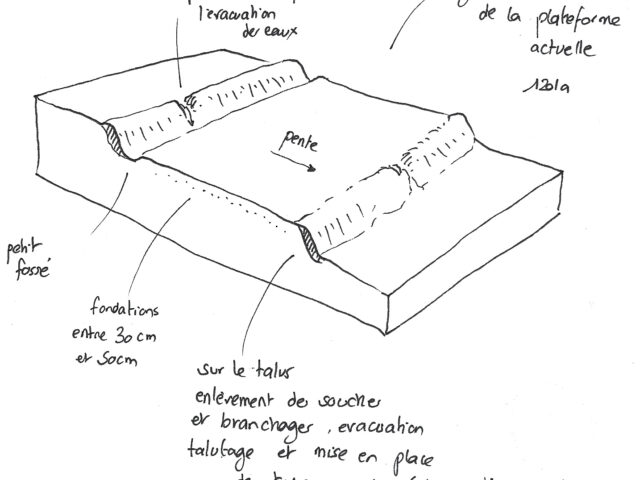 l'évacuation
des eaux
de la plateforme
actuelle
pente
petit
fossé
fondations
entre 30 cm
et 50cm
sur le talus
enlèvement de souches
et branchages, evacuation
talutage et mise en place